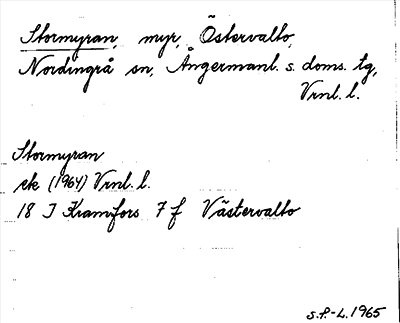 Stormyran, myr, Östervalto,
Nordingrå sn, Ångermanl. s. doms. tg,
Vrnl. l.
Stormyran
ek (1964) Vrnl. l.
18 J Kramfors 7 f Västervalto
S.P.-L. 1965